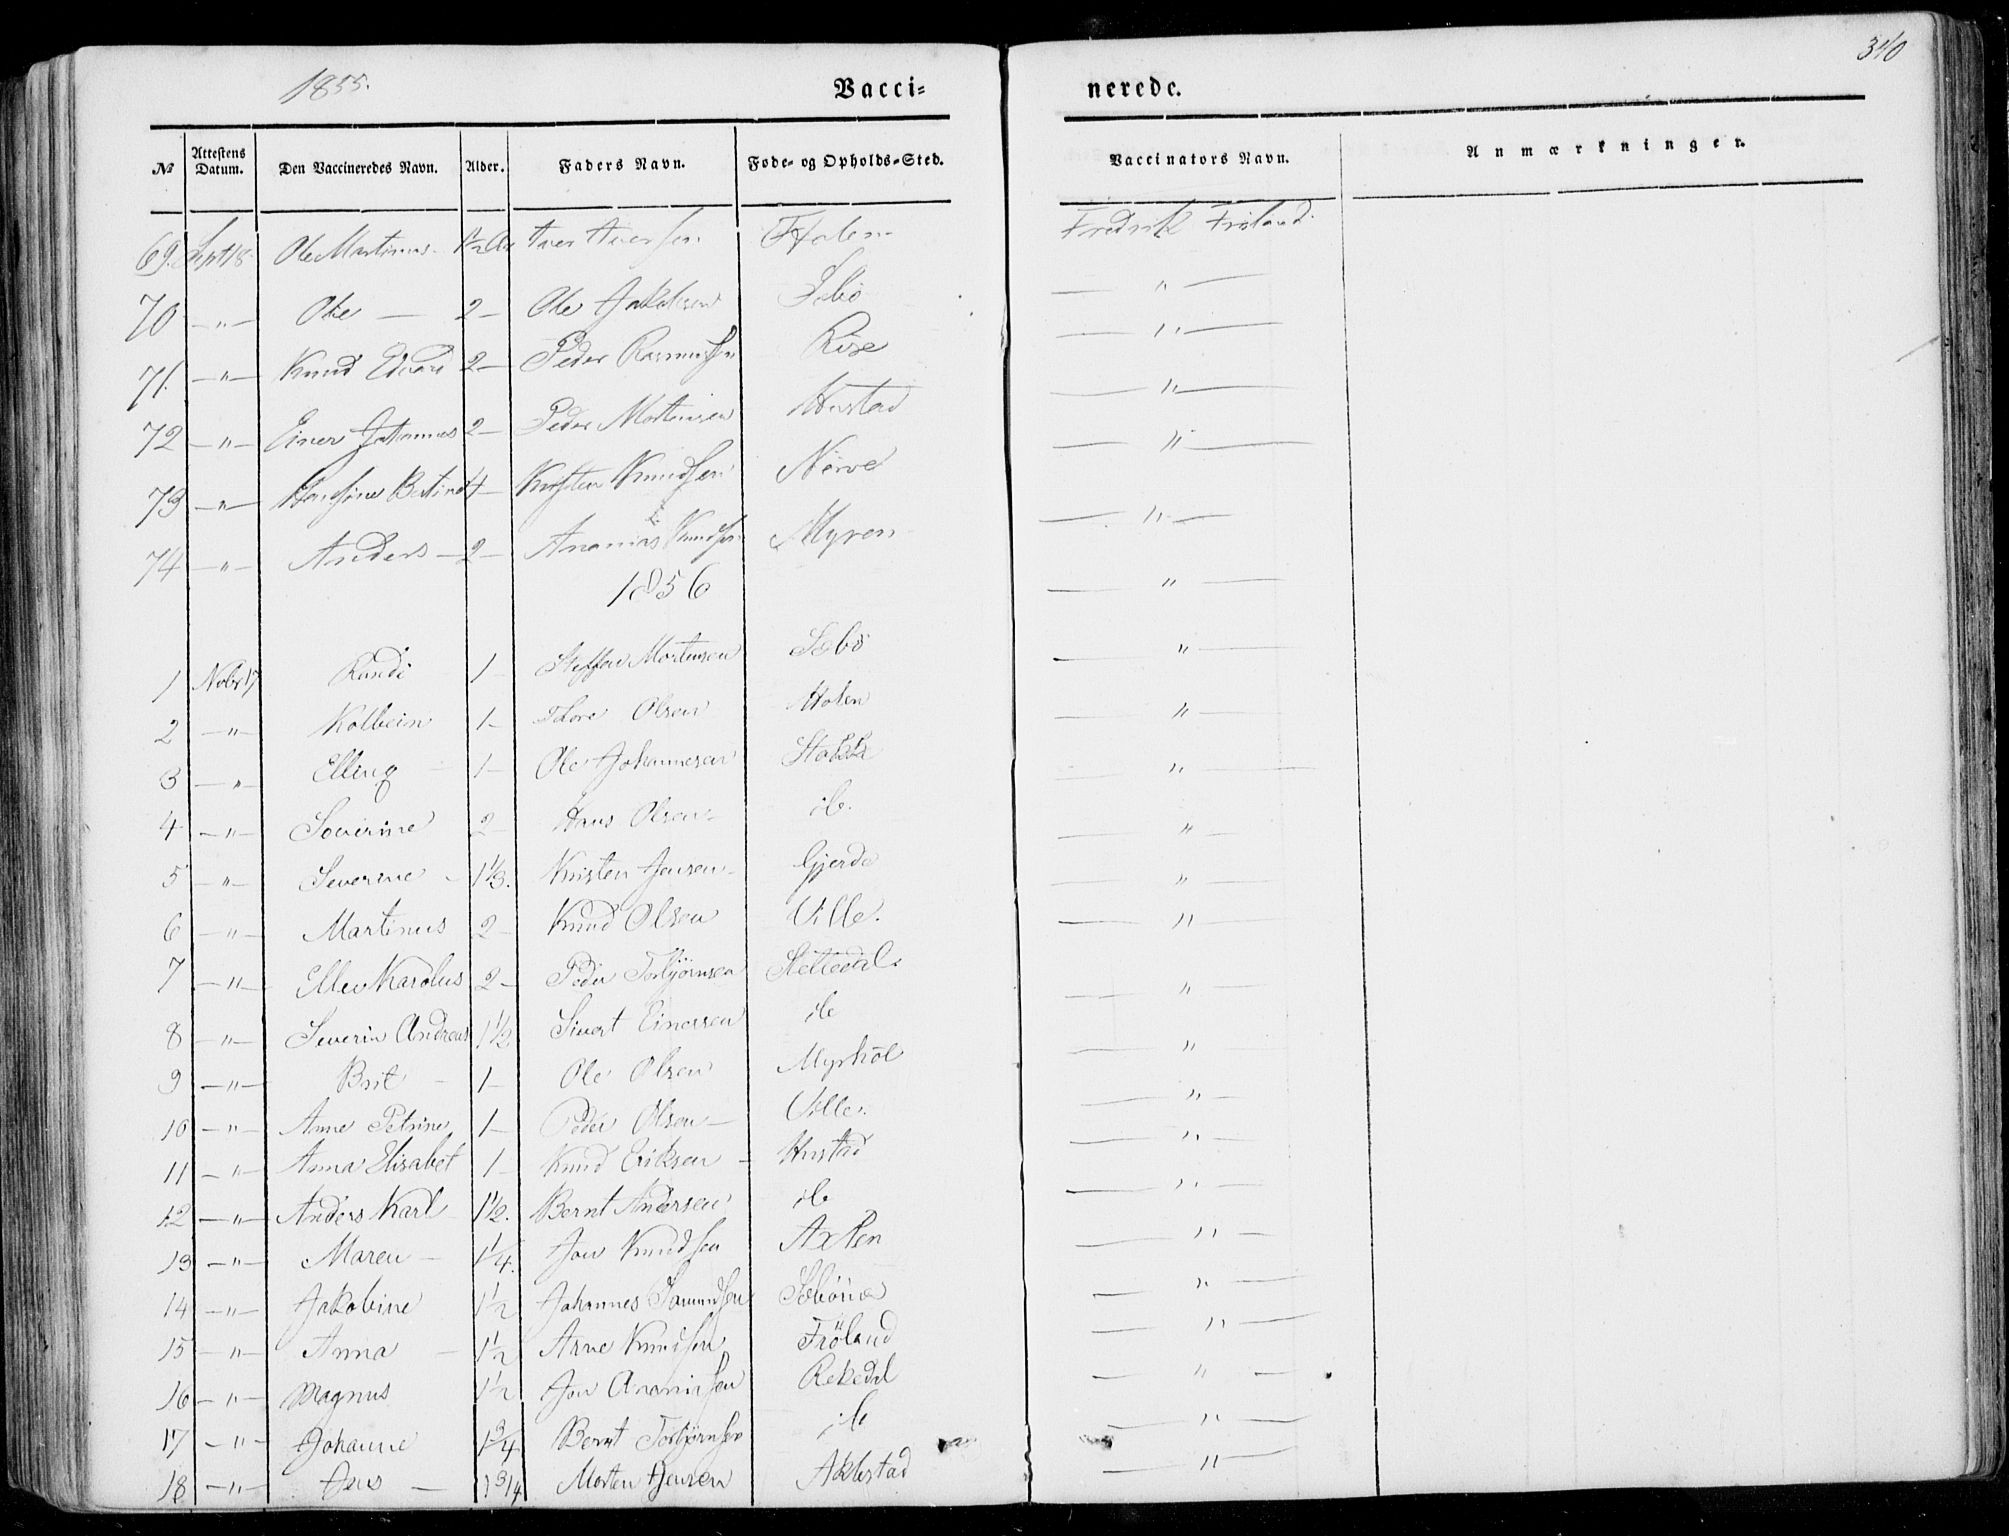 1855.
Vacci= nerede.
340
No Attestens Datum. Den Vaccineredes Navn. Alder. Faders Navn. Føde- og Opholds-Sted. Vaccinators Navn. Anmærkninger.
69. Sept 18 Ole Martinus 1½ Iver Iversen Holen Fredrik Fröland.
70 — " — Ole — 2 — Ole Jakobsen Sæbö — " —
71. — " — Knud Edvard 2 — Peder Rasmussen Rise — " —
72 — " — Einer Johannes 2 — Peder Mortensen Hustad — " —
73 — " — Bertine 4 — Kristen Knudsen Nørve — " —
74 — " — Anders — 2 — Ananias Knudsen Myren — " —
1856 — " —
1 Nobr 17 Randi 1 — Steffen Mortensen Sæbö — " —
2 — " — Kolbein 1 — Thore Olsen Holen — " —
3 — " — Elling — 1 — Ole Johannesen Stokke — " —
4 — " — Severine 2 — Hans Olsen ib. — " —
5 — " — Severine 1⅓. Kristen Jensen Gjerde — " —
6 — " — Martinus 2 — Knud Olsen Ulle. — " —
7 — " — Ellev Karolus 2 — Peder Torbjørnsen Slettedal. — " —
8 — " — Severin Andreas 1½ Sivert Einersen ib — " —
9 — " — Brit — 1 — Ole Olsen Myrhol — " —
10 — " — Anne Petrine 1 — Peder Olsen — Ulle. — " —
11 — " — Anna Elisabet 1 — Knud Eriksen — Hustad — " —
12 — " — Anders Karl 1½. Bernt Andersen ib — " —
13 — " — Maren — 1¼. Jon Knudsen Axlen — " —
14 — " — Jakobine 1½ Johannes Samundsen Sæbönes — " —
15 — " — Anna — 1½ Arne Knudsen Fröland — " —
16 — " — Magnus 1½ Jon Ananiasen Rekedal — " —
17 — " — Johanne 1¾ Bernt Torbjørnsen ib — " —
18 — " — Jens — 1¾ Morten Jensen Aklestad — " —